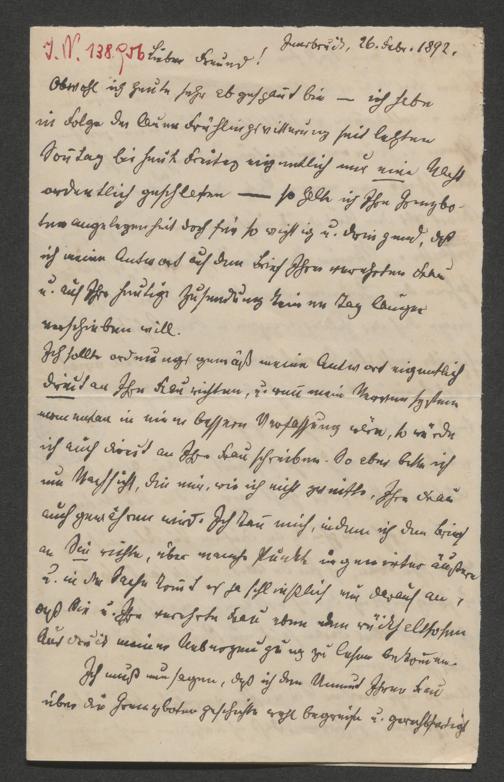 J. N. 138.956 Lieber Freund! Innsbruck, 26. Febr. 1892.
Obwohl ich heute sehr abgespannt bin — ich habe
in Folge der lauen Frühlingswitterung seit letzten
Sonntag bis heut Freitag eigentlich nur eine Nacht
ordentlich geschlafen — so halte ich Ihre Grenzbo-
tenangelegenheit doch für so wichtig u. dringend, daß
ich meine Antwort auf den Brief Ihrer verehrten Frau
u. auf Ihre heutige Zusendung keinen Tag länger
verschieben will.
Ich sollte ordnungsgemäß meine Antwort eigentlich
direct an Ihre Frau richten, u. wenn mein Nervensystem
momentan in einer bessern Verfassung wäre, so würde
ich auch direct an Ihre Frau schreiben. So aber bitte ich
um Nachsicht, die mir, wie ich nicht zweifle, Ihre Frau
auch gewähren wird. Ich kann mich, indem ich den Brief
an Sie richte, über manche Punkte ungenirter äußern
u. in der Sache kommt es ja schließlich nur darauf an,
daß Sie u. Ihre verehrte Frau eben den rückhaltlosen
Ausdruck meiner Ueberzeugung zu lesen bekommen.
Ich muß nun sagen, daß ich den Unmut Ihrer Frau
über die Grenzbotengeschichte wohl begreife u. gerechtfertigt